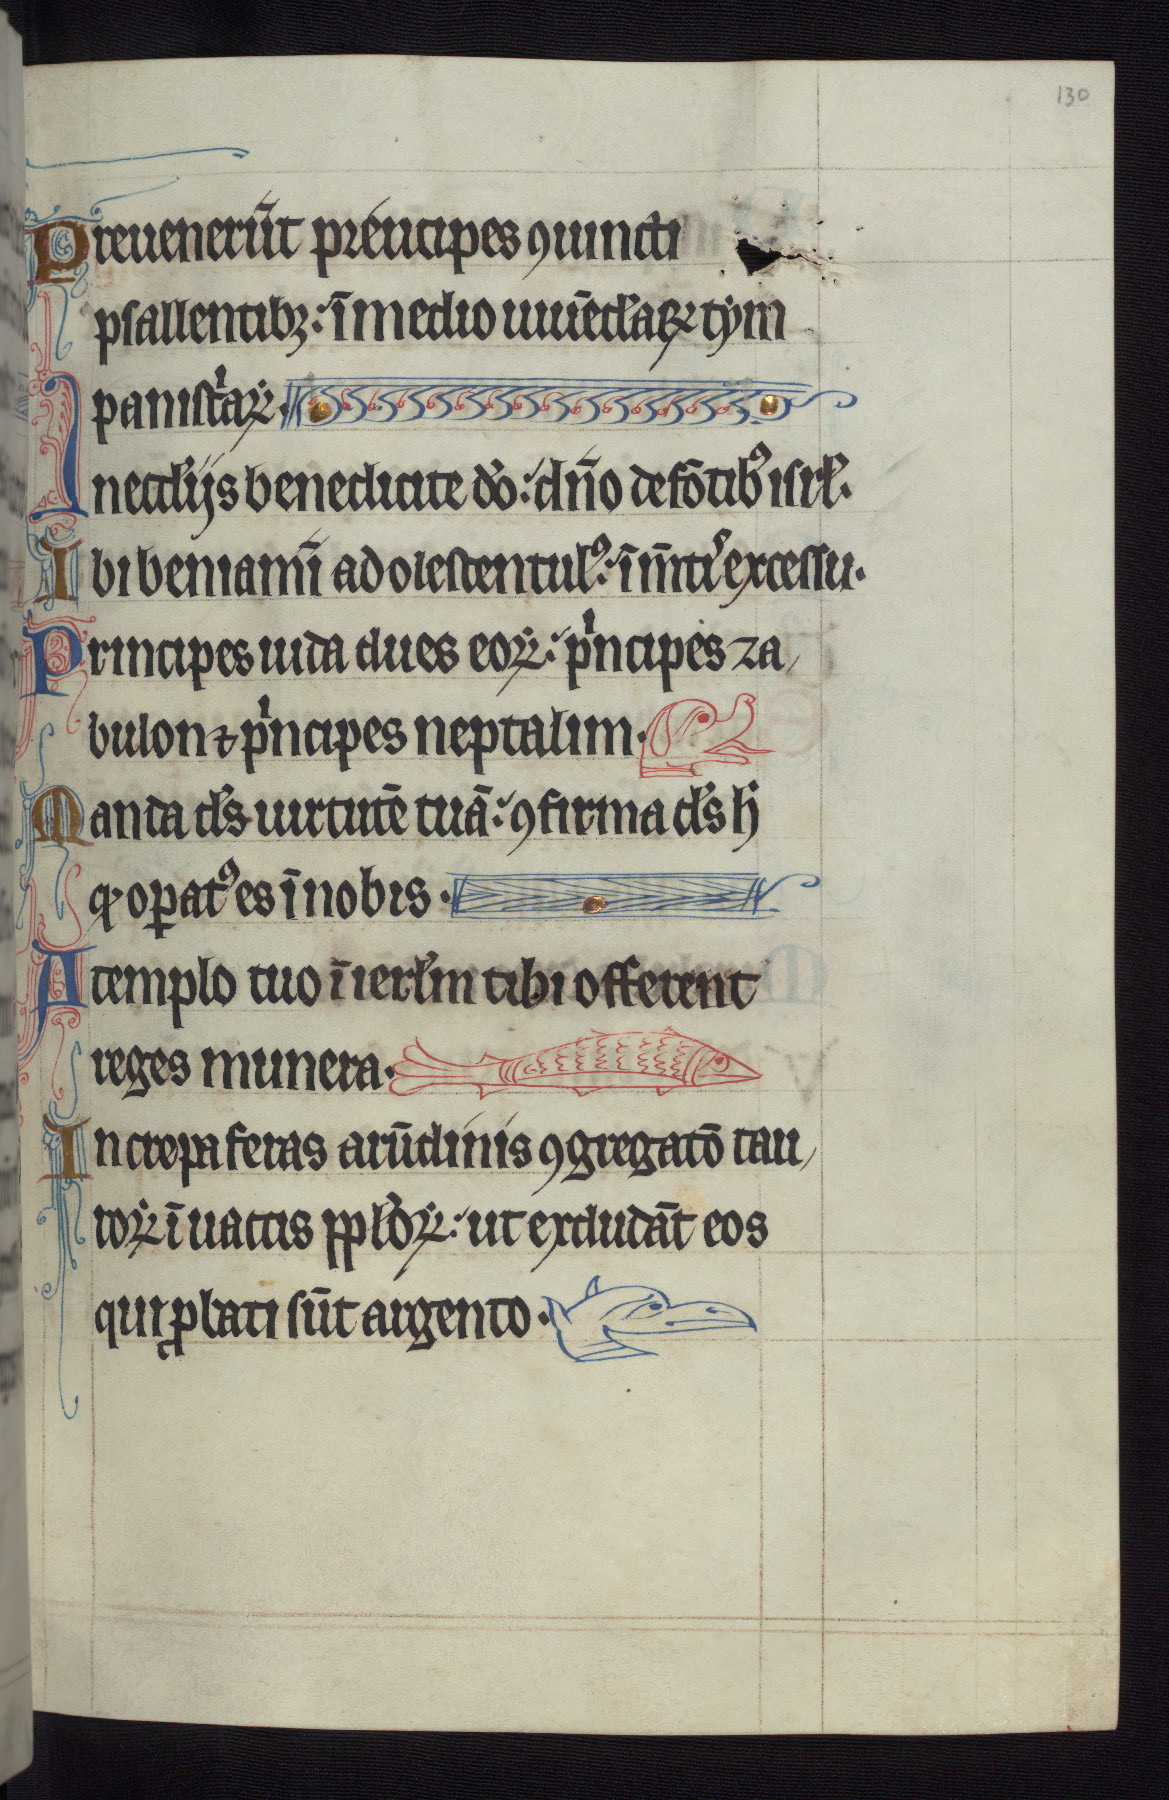 130
Preuenerūt príncipes ꝯiuncti
psallentibꝫ: ī medio iuuēcl̄aꝝ tẏm
panistͥaꝝ.
In eccl̄ijs benedicite dō: dn̄o de fōtibꝰ isrl̄.
Ibi beniamī adolescentulꝰ: ī m̄tis excessu.
Principes iuda duces eoꝝ: pͥncipes za
bulon ⁊ pͥncipes neptalim.
Manda ds̄ uirtutē tuā: ꝯfirma ds̄ h̄
qͥ opatꝰ es ī nobis.
A templo tuo ī ierl̄m tibi offerent
reges munera.
Increpa feras arūdinis ꝯgregatō tau
roꝝ ī uaccis ppl̄oꝝ: ut excludāt eos
qui ꝓbati sūt argento.